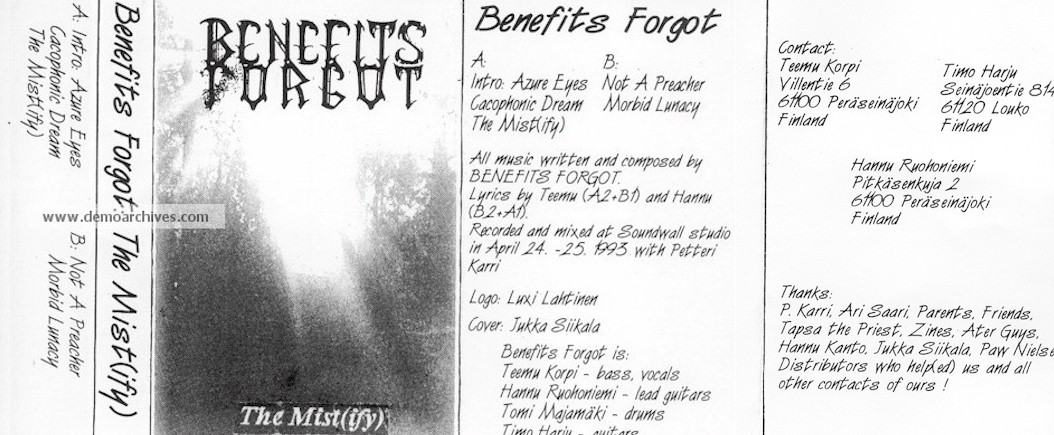 A: Intro: Azure Eyes
Cacophonic Dream
The Mist(ify)
B: Not A Preacher
Morbid Lunacy
Benefits Forgot: The Mist(ify)
www.demoarchives.com
BENEFITS
FORGOT
The Mist(ify)
Benefits Forgot
A:
Intro: Azure Eyes
Cacophonic Dream
The Mist(ify)
B:
Not A Preacher
Morbid Lunacy
All music written and composed by
BENEFITS FORGOT.
Lyrics by Teemu (A2+B1) and Hannu
(B2+A1).
Recorded and mixed at Soundwall studio
in April 24. -25. 1993 with Petteri
Karri
Logo: Luxi Lahtinen
Cover: Jukka Siikala
Benefits Forgot is:
Teemu Korpi - bass, vocals
Hannu Ruohoniemi - lead guitars
Tomi Majamäki - drums
Timo Harju - guitars
Contact:
Teemu Korpi
Villentie 6
61100 Peräseinäjoki
Finland
Timo Harju
Seinäjoentie 814
61120 Louko
Finland
Hannu Ruohoniemi
Pitkäsenkuja 2
61100 Peräseinäjoki
Finland
Thanks:
P. Karri, Ari Saari, Parents, Friends,
Tapsa the Priest, Zines, Ater Guys,
Hannu Kanto, Jukka Siikala, Paw Nielse
Distributors who help(ed) us and all
other contacts of ours !